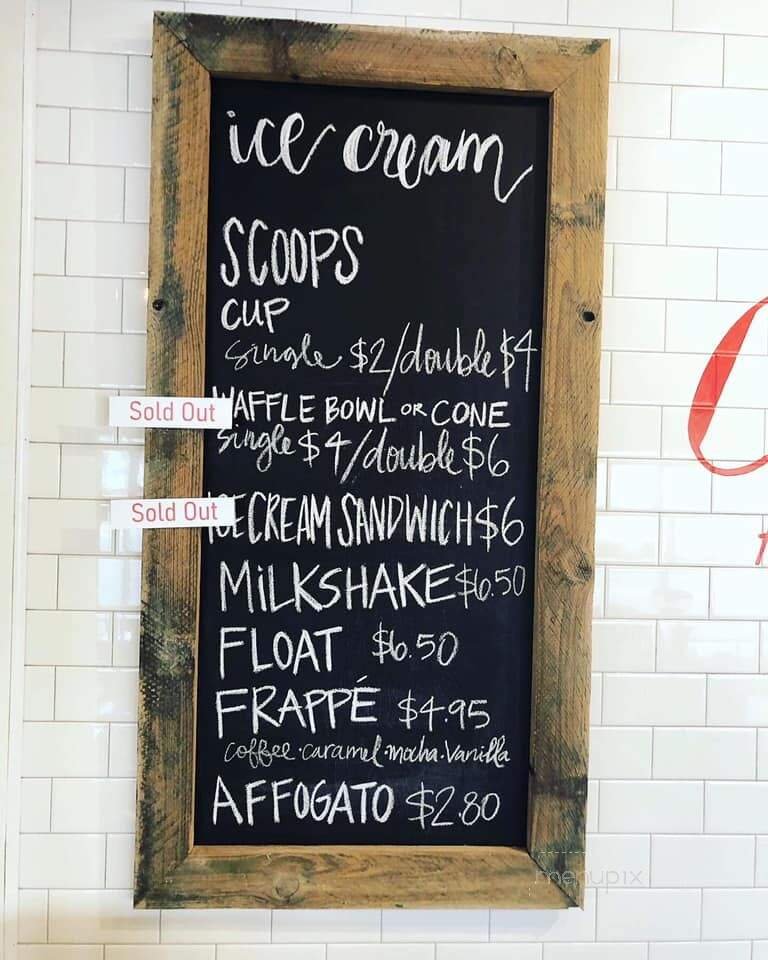 ice cream
SCOOPS
CUP
single $2/double $4
Sold Out
WAFFLE BOWL OR CONE
single $4/double $6
Sold Out
ICE CREAM SANDWICH $6
MiLKSHAKE $6.50
FLOAT $6.50
FRAPPÉ $4.95
coffee·caramel·mocha·vanilla
AFFOGATO $2.80
menupix